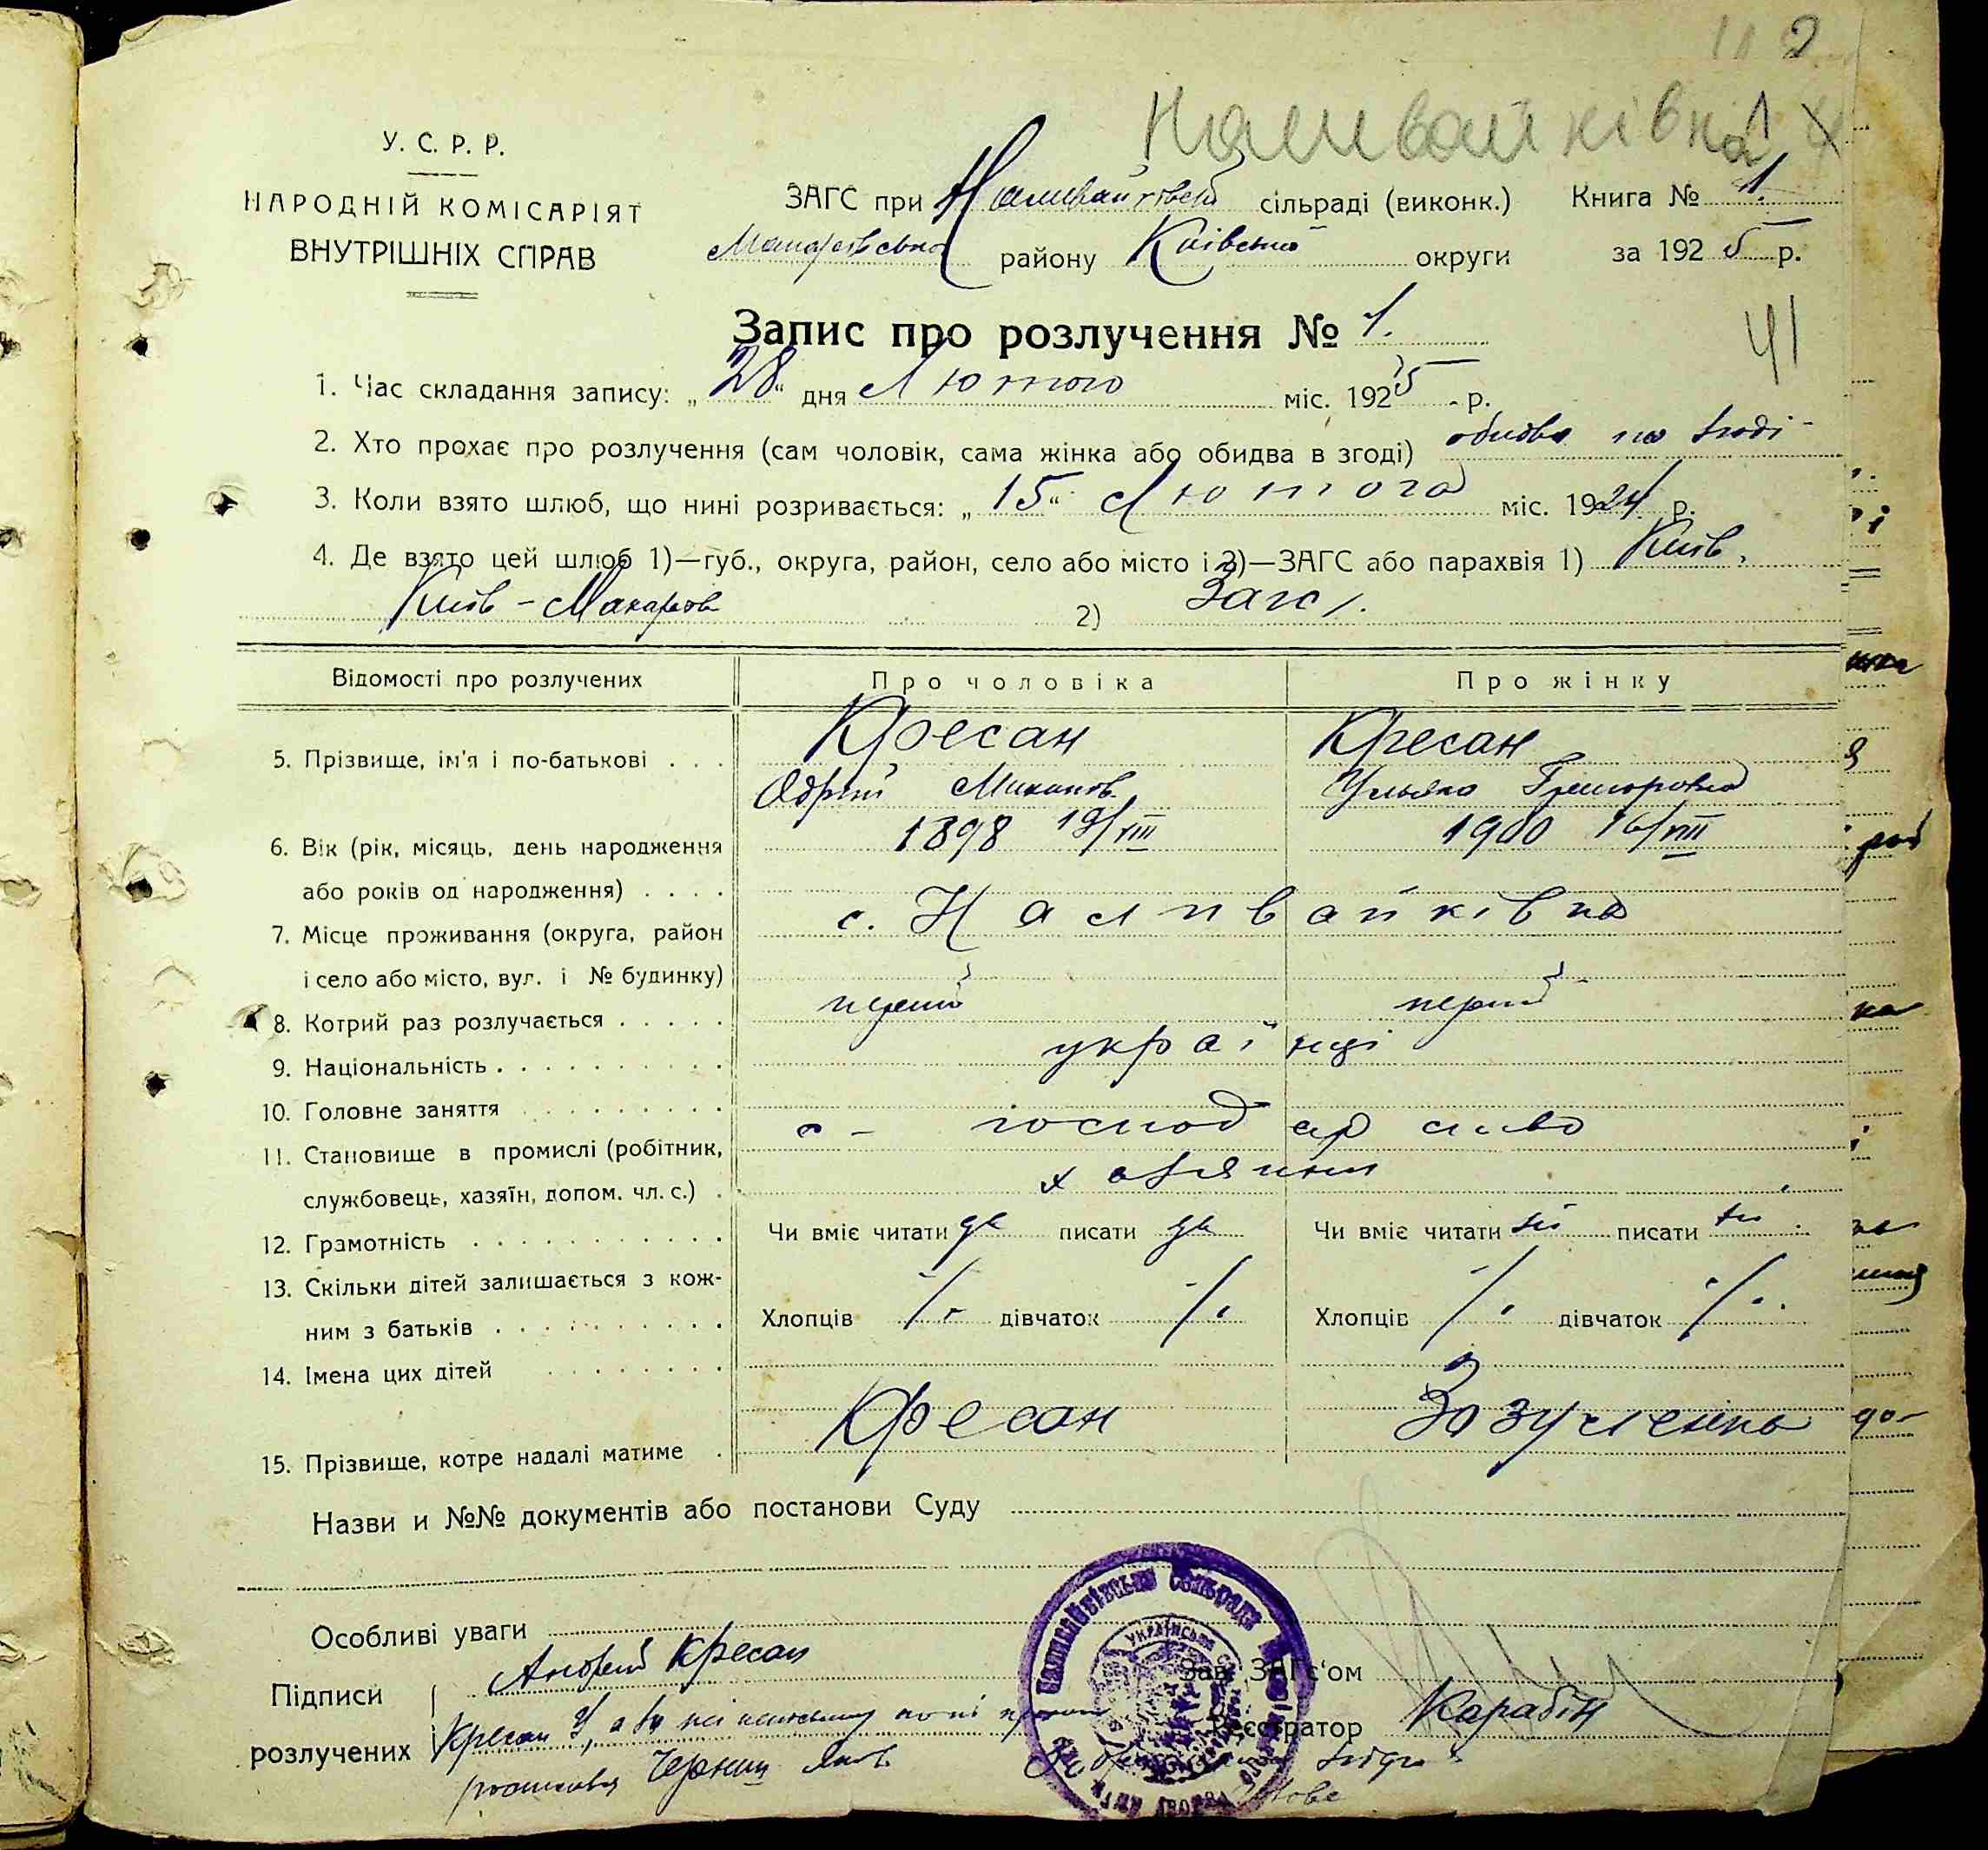 2
Наливайківка
У. С. Р. Р.
НАРОДНІЙ КОМІСАРІЯТ
ВНУТРІШНІХ СПРАВ
ЗАГС при Наливайківськ сільраді (виконк.) Книга № 1.
району Київської округи за 1925 р.
41
Запис про розлучення № 1.
1. Час складання запису: „28“ дня Лютого міс. 1925 р.
2. Хто прохає про розлучення (сам чоловік, сама жінка або обидва в згоді) обидва по згоді
3. Коли взято шлюб, що нині розривається: „15“ Лютога міс. 1924 р.
4. Де взято цей шлюб 1)—губ., округа, район, село або місто і 2)—ЗАГС або парахвія 1) Київ,
Київ - Макарів 2) Загс.
Відомості про розлучених Про чоловіка Про жінку
5. Прізвище, ім'я і по-батькові . . . Кресан Кресан
6. Вік (рік, місяць, день народження 1898 19/VIII 1900 16/VIII
або років од народження) . . . .
7. Місце проживання (округа, район с. Наливайківка
і село або місто, вул. і № будинку)
8. Котрий раз розлучається . . . . . перший перший
9. Національність . . . . . . . . . . українці
10. Головне заняття . . . . . . . . .
11. Становище в промислі (робітник, с - господарство
службовець, хазяїн, допом. чл. с.) . хазяини
12. Грамотність . . . . . . . . . . . Чи вміє читати да писати да Чи вміє читати ні писати ні
13. Скільки дітей залишається з кож-
ним з батьків . . . . . . . . . . Хлопців дівчаток Хлопців дівчаток
14. Імена цих дітей . . . . . . . .
15. Прізвище, котре надалі матиме . Кресан Зозуленко
Назви и №№ документів або постанови Суду
Особливі уваги
Підписи Андрей Кресан Зав. ЗАГс'ом
розлучених Кресан У, а за неї Реєстратор Карабін
Черниш Яків